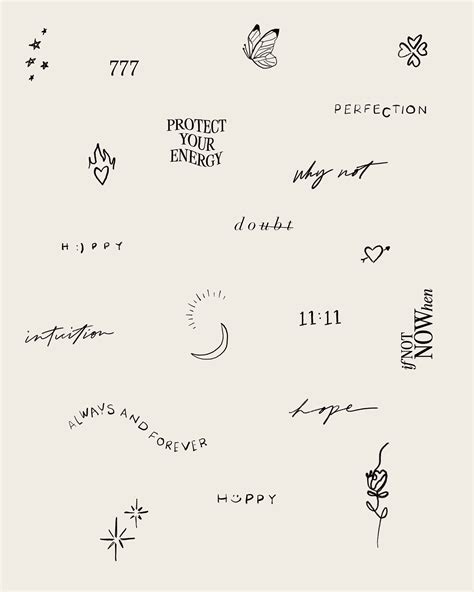 777
PERFECTION
PROTECT
YOUR
ENERGY
why not
doubt
H:)PPY
11:11
if NOT
NOW hen
intuition
hope
ALWAYS AND FOREVER
HÜPPY